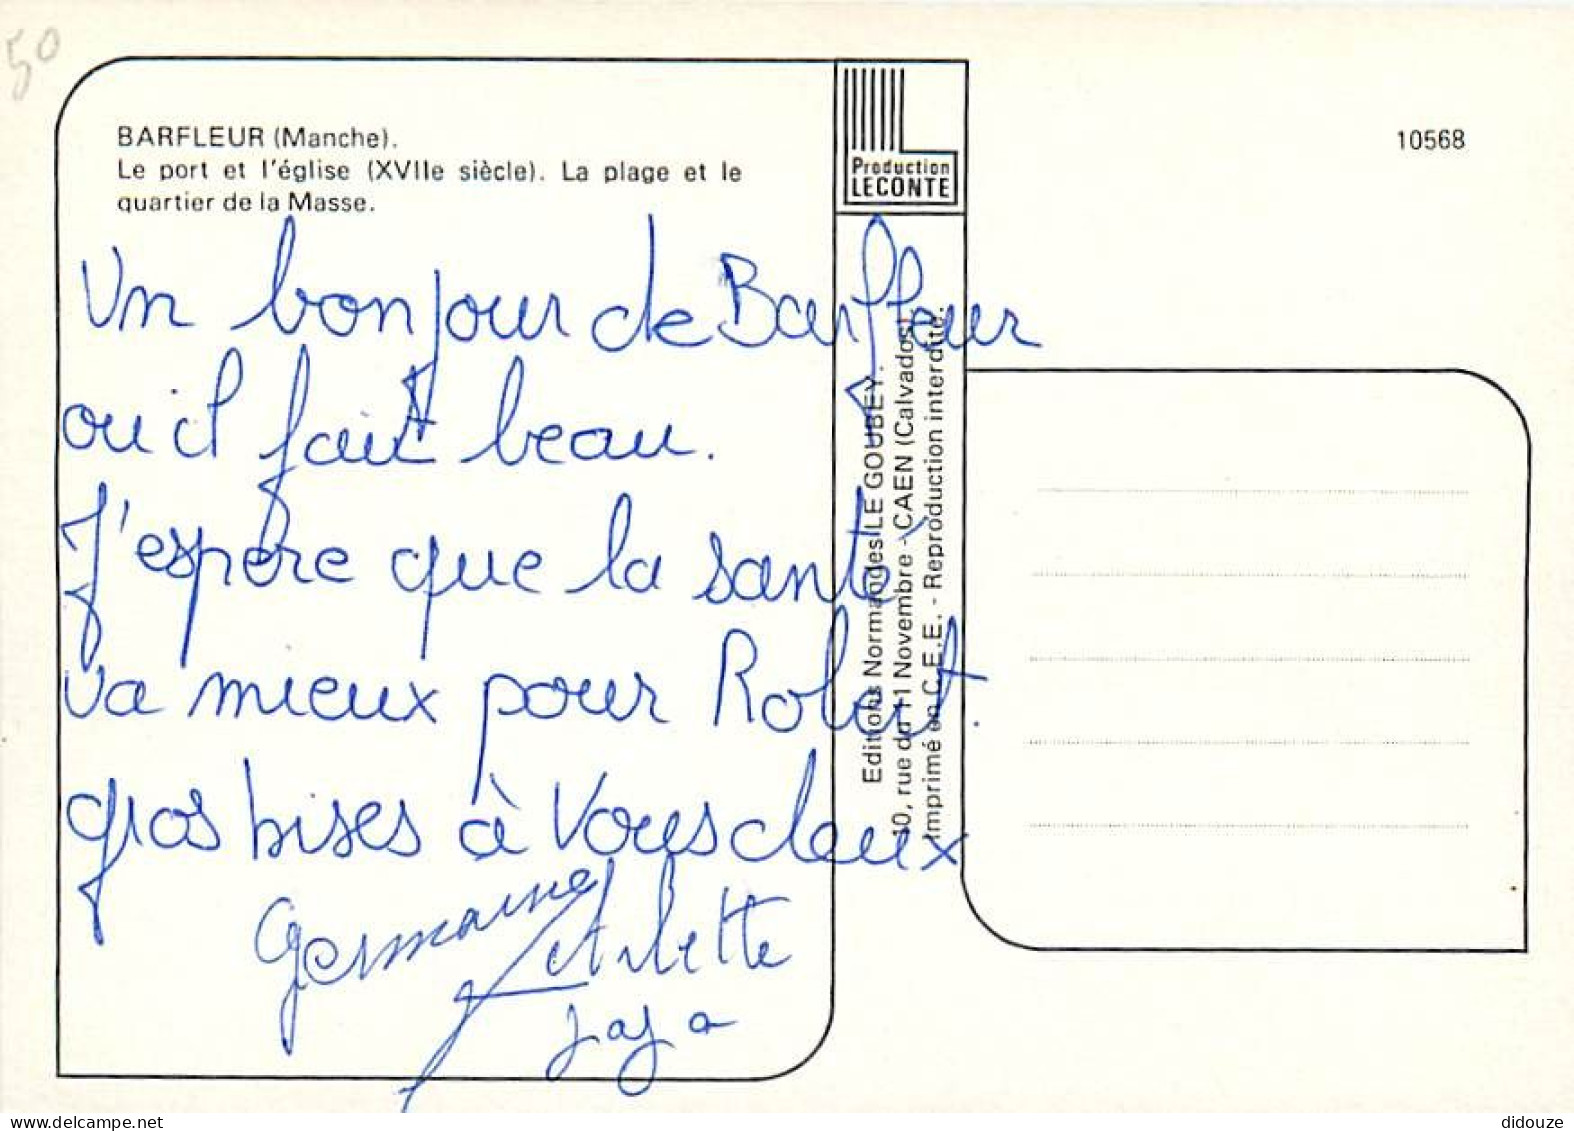 50
BARFLEUR (Manche).
Le port et l'église (XVIIe siècle). La plage et le
quartier de la Masse.
Un bonjour de Barfleur
ou il fait beau.
J'espère que la santé
va mieux pour Robert.
gros bises à Vous deux
Germaine
Arlette
Production
LECONTE
Editions Normandes LE GOUBEY.
10, rue du 11 Novembre - CAEN (Calvados).
Imprimé en C.E.E. - Reproduction interdite.
10568
didouze